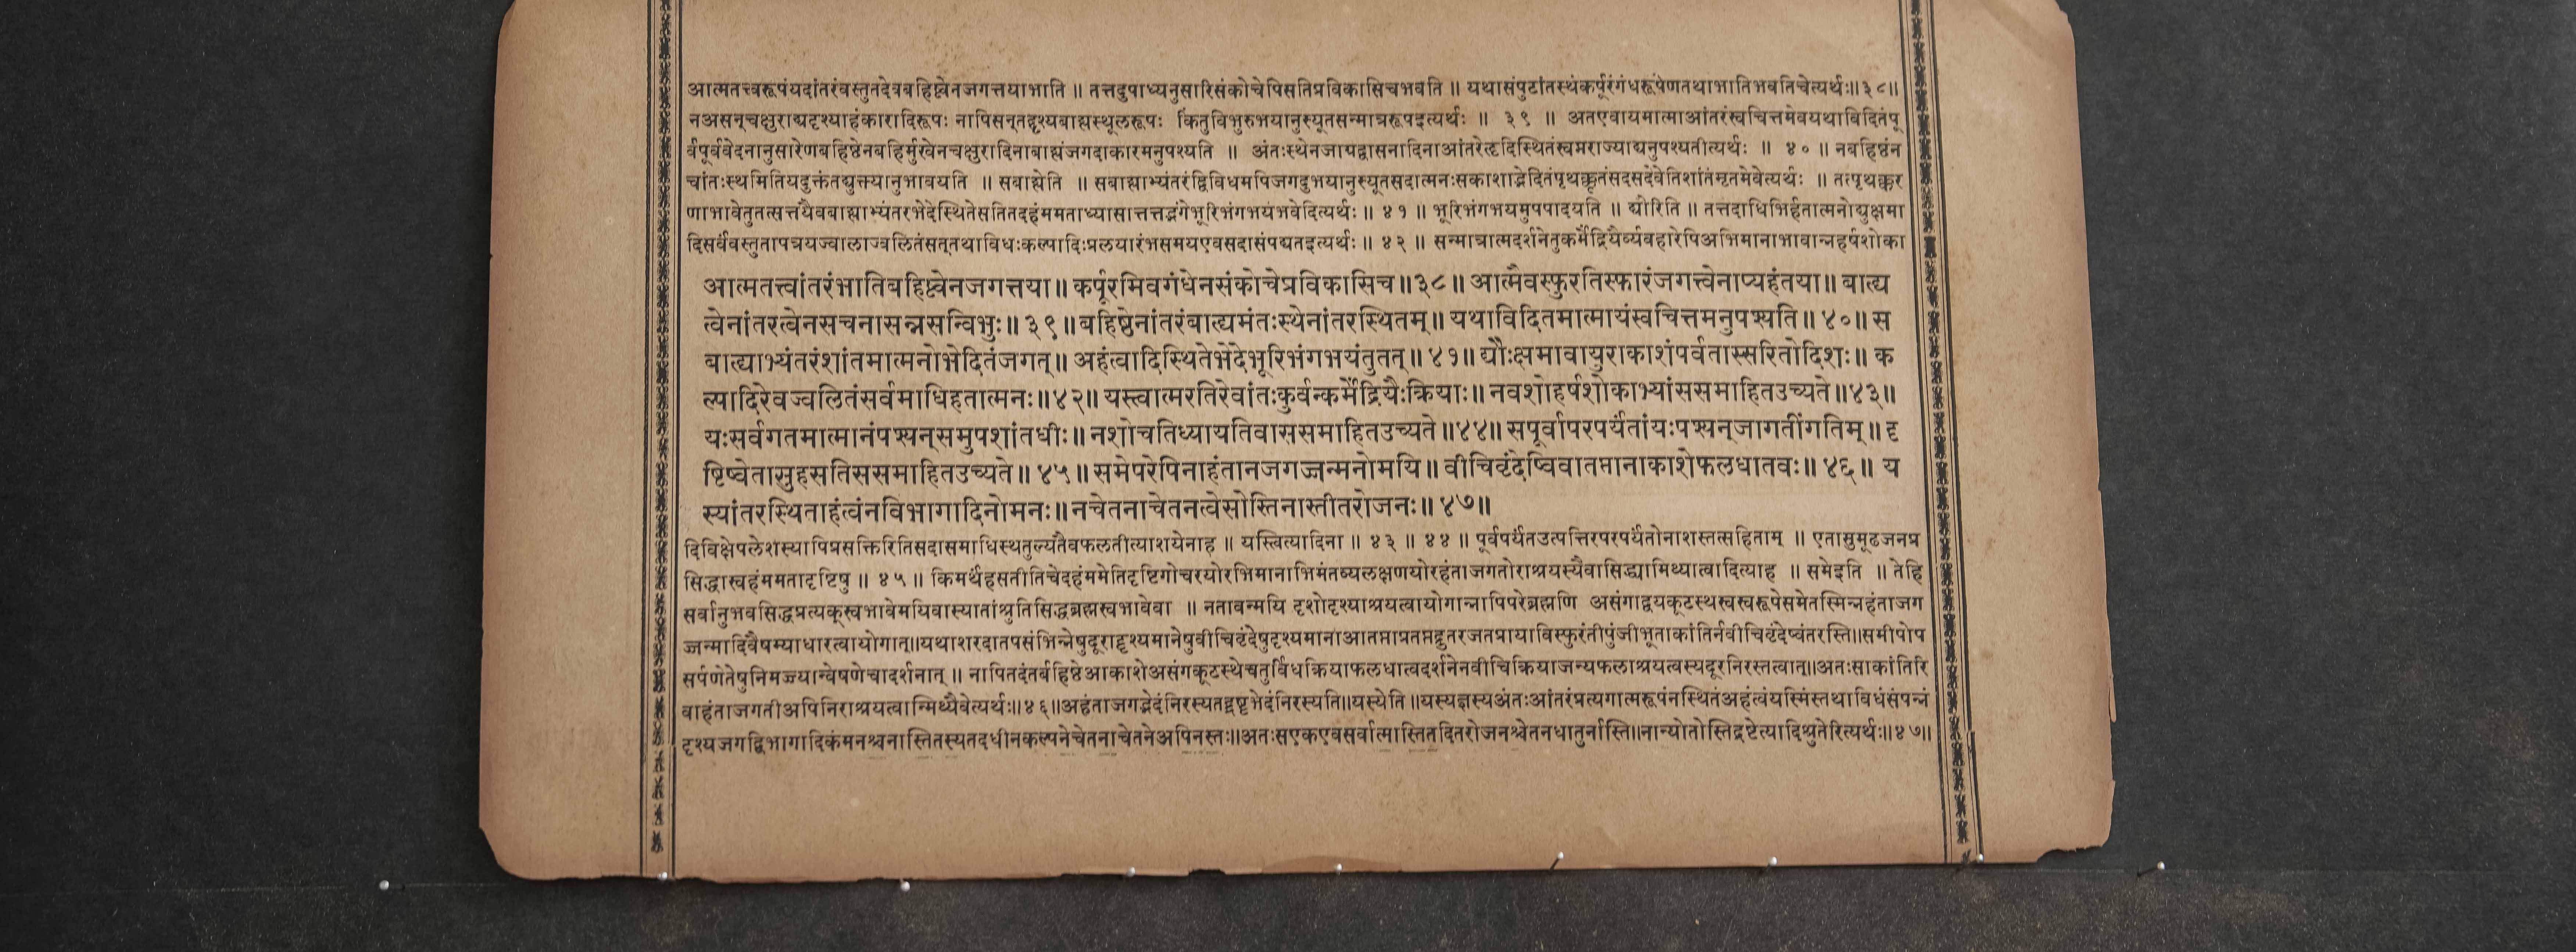 आत्मतत्त्वरूपंयदांतरंवस्तुतदेवबहिष्ट्वेनजगत्तयाभाति ॥ तत्तदुपाध्यनुसारिसंकोचेपिसतिप्रविकासिचभवति ॥ यथासंपुटांतस्थंकर्पूरंगंधरूपेणतथाभातिभवतिचेत्यर्थः॥३८॥
नअसन्चक्षुराद्यदृश्याहंकारादिरूपः नापिसन्तद्दृश्यबाह्यस्थूलरूपः किंतुविभुरुभयानुस्यूतसन्मात्ररूपइत्यर्थः ॥ ३९ ॥ अतएवायमात्माआंतरंस्वचित्तमेवयथाविदितंपू
र्वपूर्ववेदनानुसारेणबहिष्ठेनबहिर्मुखेनचक्षुरादिनाबाह्यंजगदाकारमनुपश्यति ॥ अंतःस्थेनजाग्रद्वासनादिनाआंतरेहृदिस्थितंस्वप्नराज्याद्यनुपश्यतीत्यर्थः ॥ ४० ॥ नबहिष्ठंन
चांतःस्थमितियदुक्तंतद्युक्त्यानुभावयति ॥ सबाह्येति ॥ सबाह्याभ्यंतरंद्विविधमपिजगदुभयानुस्यूतसदात्मनःसकाशाद्भेदितंपृथक्कृतंसदसदेवेतिशांतंमृतमेवेत्यर्थः ॥ तत्पृथक्कर
णाभावेतुतत्सत्तयैवबाह्याभ्यंतरभेदेस्थितेसतितदहंममताध्यासात्तत्तद्भंगेभूरिभंगभयंभवेदित्यर्थः॥ ४१ ॥ भूरिभंगभयमुपपादयति ॥ द्यौरिति ॥ तत्तदाधिभिर्हतात्मनोद्युक्षमा
दिसर्ववस्तुतापत्रयज्वालाज्वलितंसत्तथाविधःकल्पादिःप्रलयारंभसमयएवसदासंपद्यतइत्यर्थः॥ ४२ ॥ सन्मात्रात्मदर्शनेतुकर्मेंद्रियैर्व्यवहारेपिअभिमानाभावान्नहर्षशोका
आत्मतत्त्वांतरंभातिबहिष्ट्वेनजगत्तया॥ कर्पूरमिवगंधेनसंकोचेप्रविकासिच॥३८॥ आत्मैवस्फुरतिस्फारंजगत्त्वेनाप्यहंतया॥ बाह्य
त्वेनांतरत्वेनसचनासन्नसन्विभुः॥ ३९॥ बहिष्ठेनांतरंबाह्यमंतःस्थेनांतरस्थितम्॥ यथाविदितमात्मायंस्वचित्तमनुपश्यति॥ ४०॥ स
बाह्याभ्यंतरंशांतमात्मनोभेदितंजगत्॥ अहंत्वादिस्थितेभेदेभूरिभंगभयंतुतत्॥ ४१॥ द्यौःक्षमावायुराकाशंपर्वतास्सरितोदिशः॥ क
ल्पादिरेवज्वलितंसर्वमाधिहतात्मनः॥४२॥ यस्त्वात्मरतिरेवांतःकुर्वन्कर्मेंद्रियैःक्रियाः॥ नवशोहर्षशोकाभ्यांससमाहितउच्यते॥४३॥
यःसर्वगतमात्मानंपश्यन्समुपशांतधीः॥ नशोचतिध्यायतिवाससमाहितउच्यते॥४४॥ सपूर्वापरपर्यंतांयःपश्यन्जागतींगतिम्॥ दृ
ष्टिष्वेतासुहसतिससमाहितउच्यते॥ ४५॥ समेपरेपिनाहंतानजगज्जन्मनोमयि॥ वीचिवृंदेष्विवातप्तानाकाशेफलधातवः॥ ४६॥ य
स्यांतरस्थिताहंत्वंनविभागादिनोमनः॥ नचेतनाचेतनत्वेसोस्तिनास्तीतरोजनः॥ ४७॥
दिविक्षेपलेशस्यापिप्रसक्तिरितिसदासमाधिस्थतुल्यतैवफलतीत्याशयेनाह ॥ यस्त्वित्यादिना ॥ ४३ ॥ ४४ ॥ पूर्वपर्यंतउत्पत्तिरपरपर्यंतोनाशस्तत्सहिताम् ॥ एतासुमूढजनप्र
सिद्धास्वहंममतादृष्टिषु ॥ ४५ ॥ किमर्थंहसतीतिचेदहंममेतिदृष्टिगोचरयोरभिमानाभिमंतव्यलक्षणयोरहंताजगतोराश्रयस्यैवासिद्ध्यामिथ्यात्वादित्याह ॥ समेइति ॥ तेहि
सर्वानुभवसिद्धप्रत्यक्स्वभावेमयिवास्यातांश्रुतिसिद्धब्रह्मस्वभावेवा ॥ नतावन्मयि दृशोदृश्याश्रयत्वायोगान्नापिपरेब्रह्मणि असंगाद्वयकूटस्थस्वस्वरूपेसमेतस्मिन्नहंताजग
ज्जन्मादिवैषम्याधारत्वायोगात्॥यथाशरदातपसंभिन्नेषुदूरादृश्यमानेषुवीचिवृंदेषुदृश्यमानाआतप्ताप्रतप्तद्रुतरजतप्रायाविस्फुरंतीपुंजीभूताकांतिर्नवीचिवृंदेष्वंतरस्ति॥समीपोप
सर्पणेतेषुनिमज्ज्यान्वेषणेचादर्शनात् ॥ नापितदंतर्बहिष्ठेआकाशेअसंगकूटस्थेचतुर्विधक्रियाफलधात्वदर्शनेनवीचिक्रियाजन्यफलाश्रयत्वस्यदूरनिरस्तत्वात्॥अतःसाकांतिरि
वाहंताजगतीअपिनिराश्रयत्वान्मिथ्यैवेत्यर्थः॥४६॥अहंताजगद्भेदंनिरस्यतद्द्रष्टृभेदंनिरस्यति॥यस्येति ॥यस्यज्ञस्यअंतःआंतरंप्रत्यगात्मरूपंनस्थितंअहंत्वंयस्मिंस्तथाविधंसंपन्नं
दृश्यजगद्विभागादिकंमनश्चनास्तितस्यतदधीनकल्पनेचेतनाचेतनेअपिनस्तः॥अतःसएकएवसर्वात्मास्तितदितरोजनश्चेतनधातुर्नास्ति॥नान्योतोस्तिद्रष्टेत्यादिश्रुतेरित्यर्थः॥४७॥